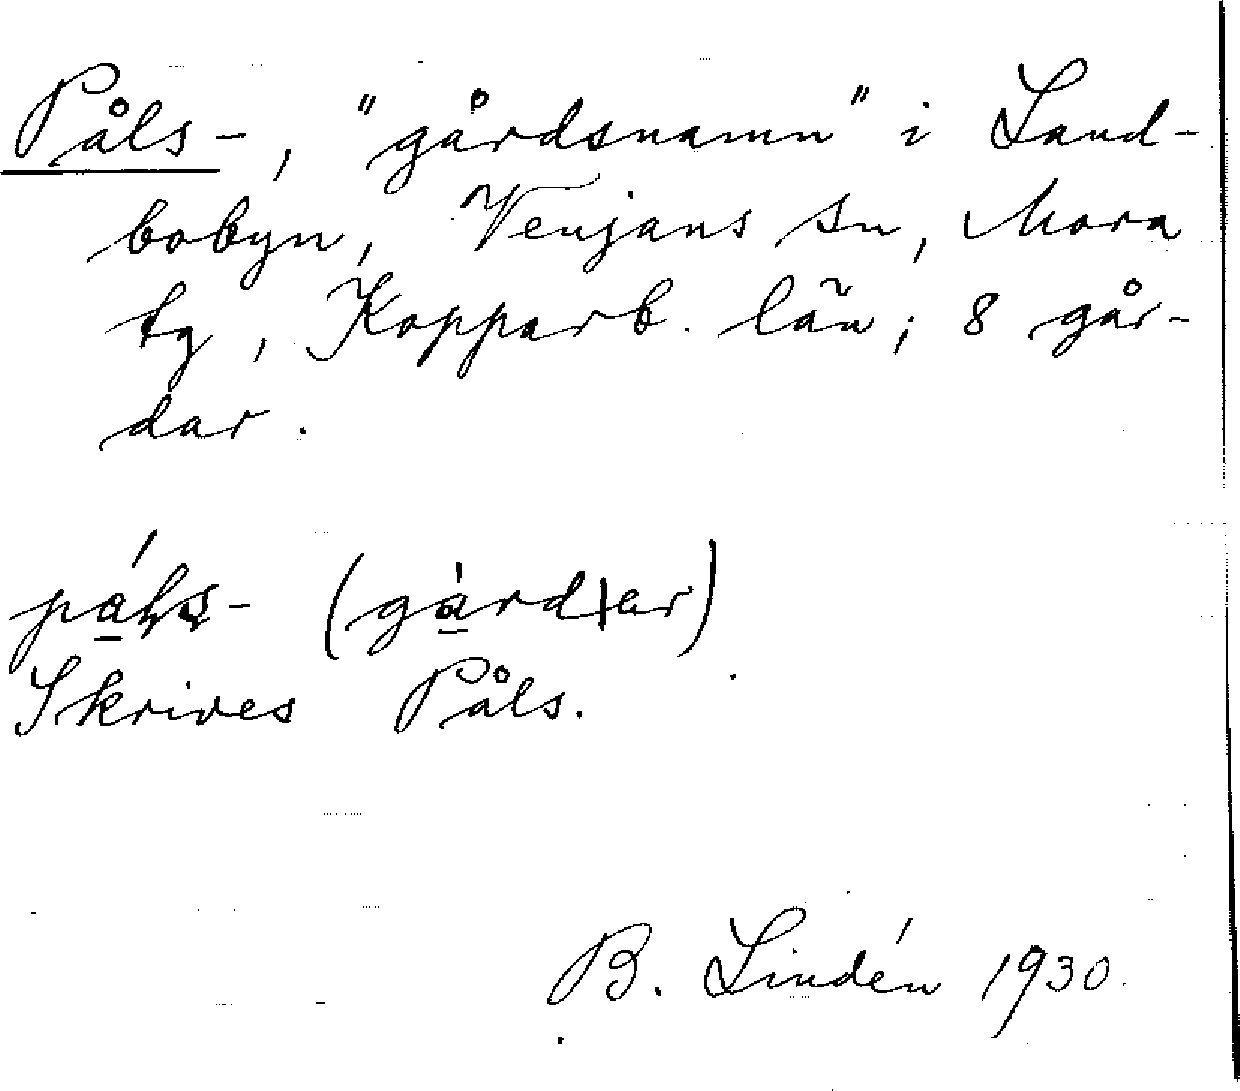 Påls-, "gårdsnamn" i Land-
bobyn, Venjans sn, Mora
tg, Kopparb. län; 8 går-
dar.
Skrives Påls.
B. Lindén 1930.